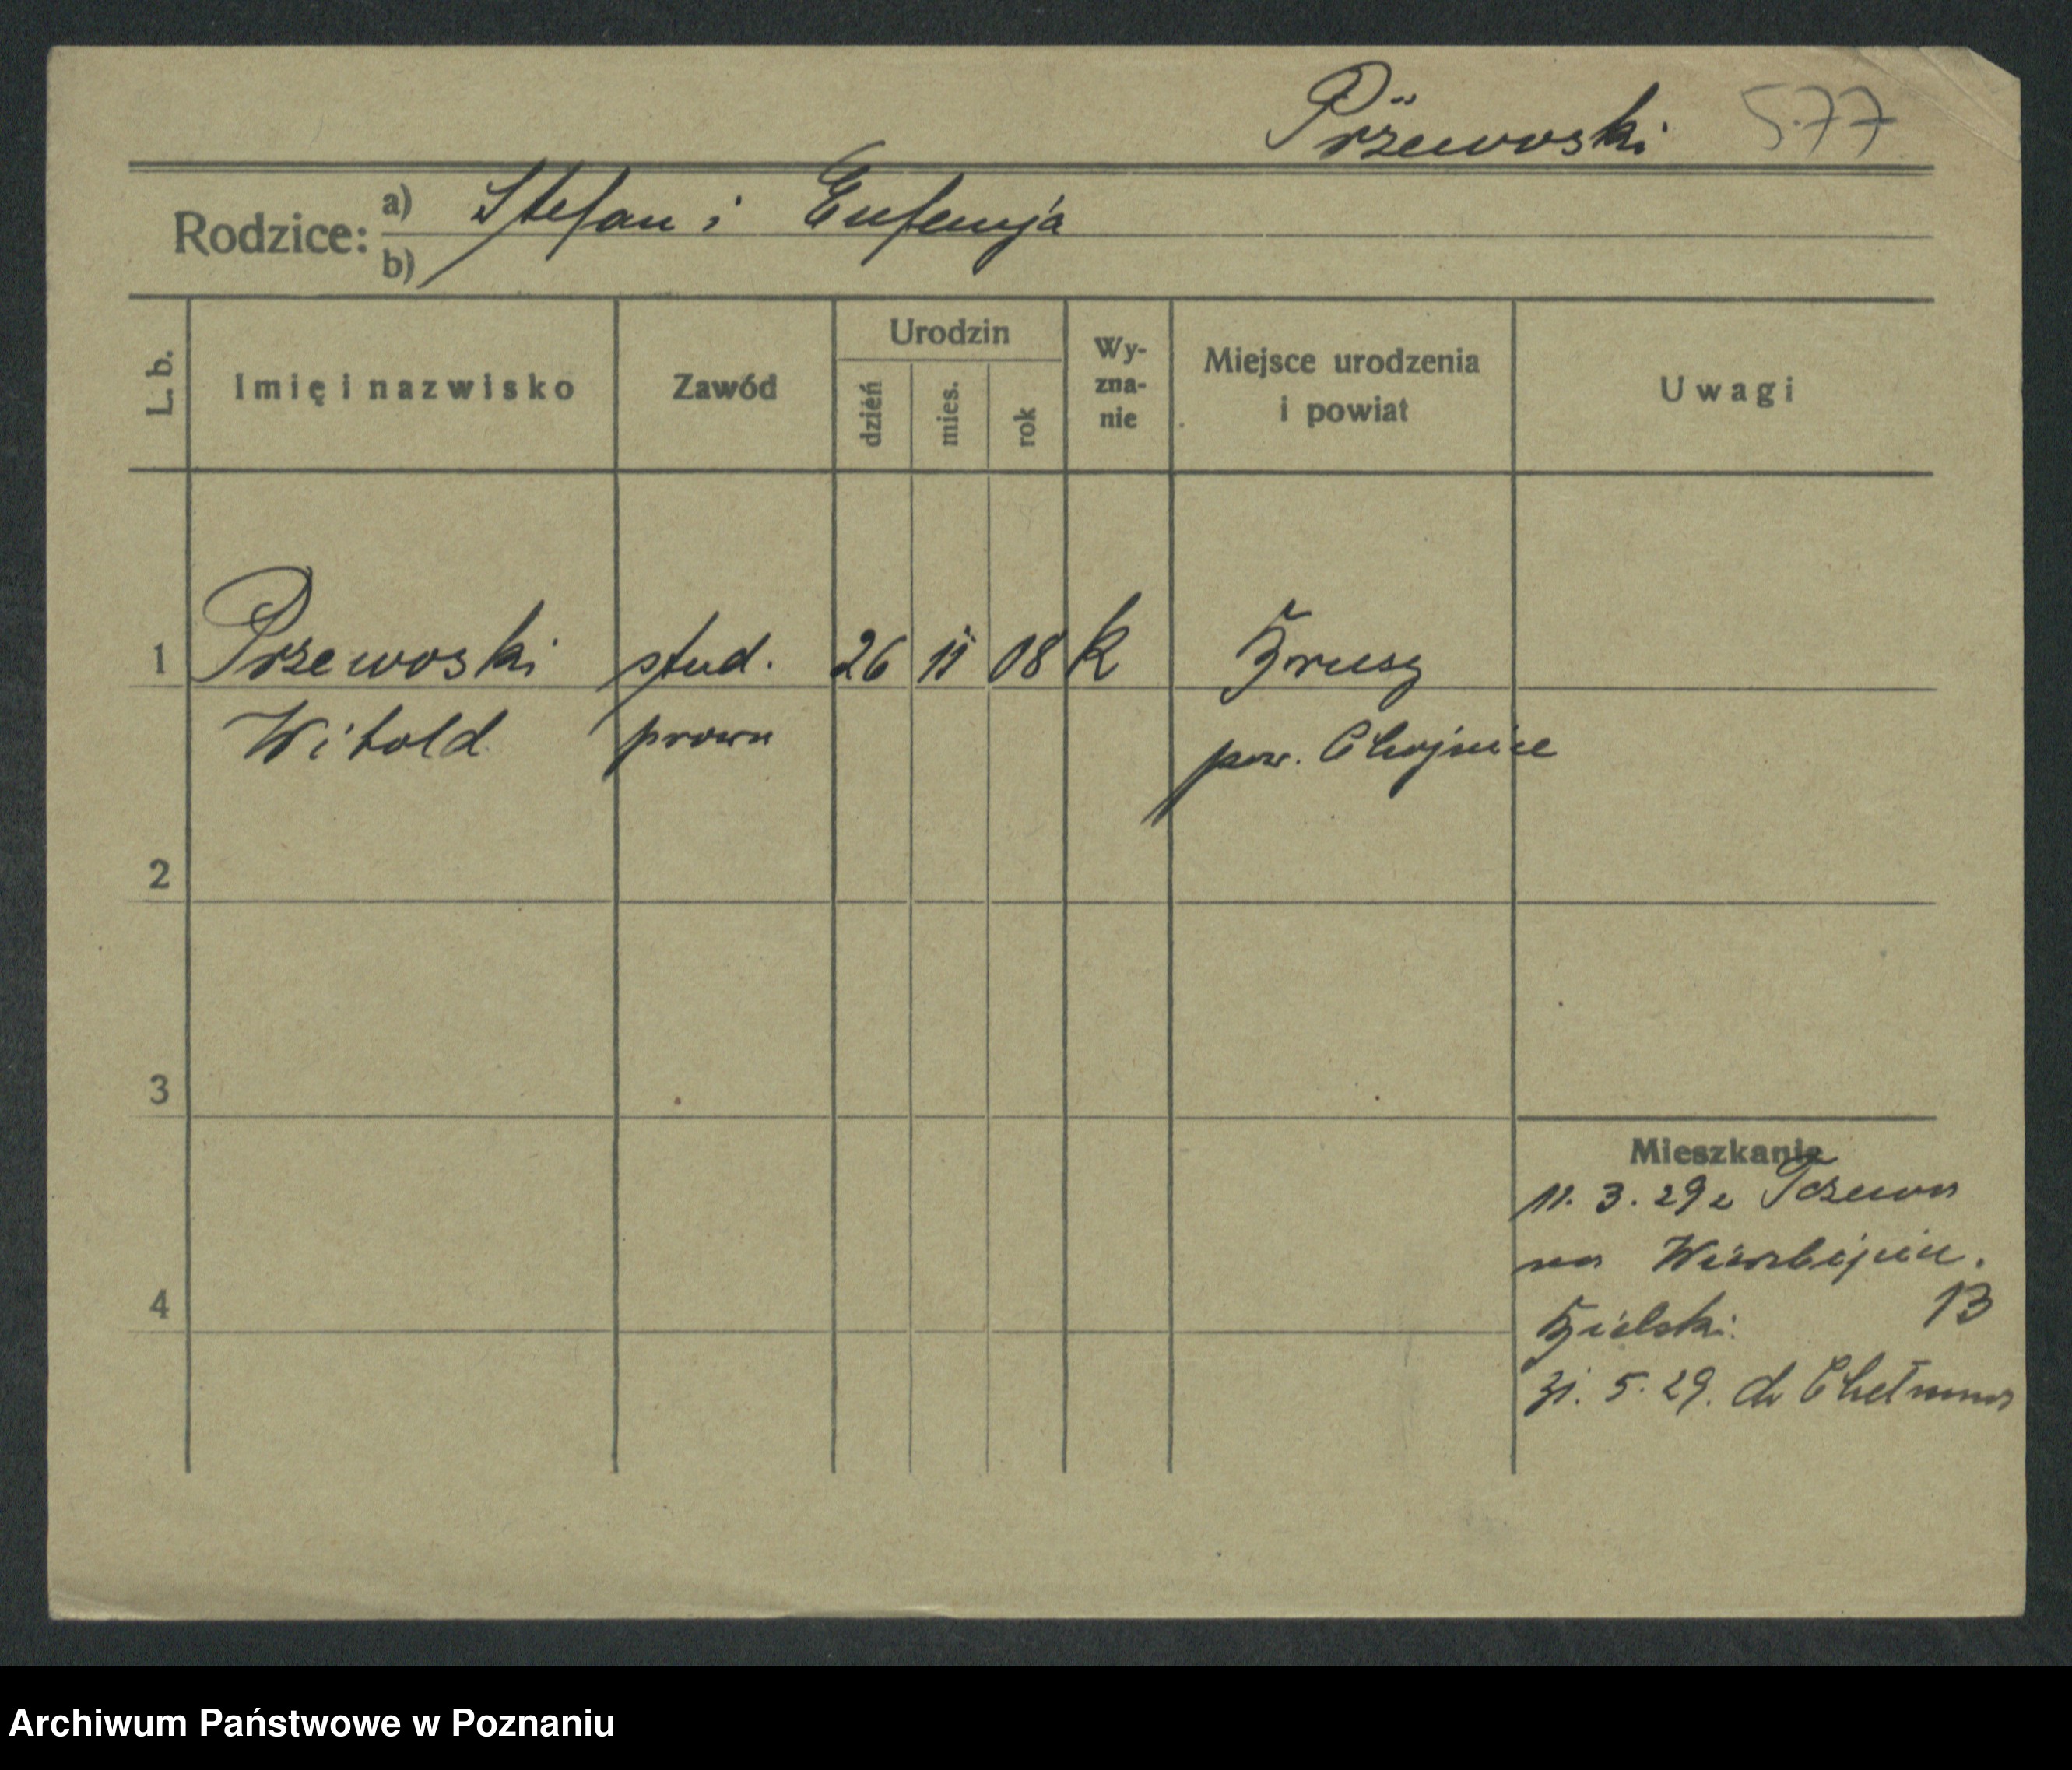 Przewoski 577
Rodzice: a) Stefan i Eufemja
b)
L. b. Imię i nazwisko Zawód Urodzin dzień mies. rok Wyznanie Miejsce urodzenia i powiat Uwagi
1 Przewoski stud. 26 11 08 k Brusy
Witold prawa pow. Chojnice
2
3
Mieszkanie
11. 3. 29 z Tczewa
na
4
13
31. 5. 29. do Chełmna
Archiwum Państwowe w Poznaniu